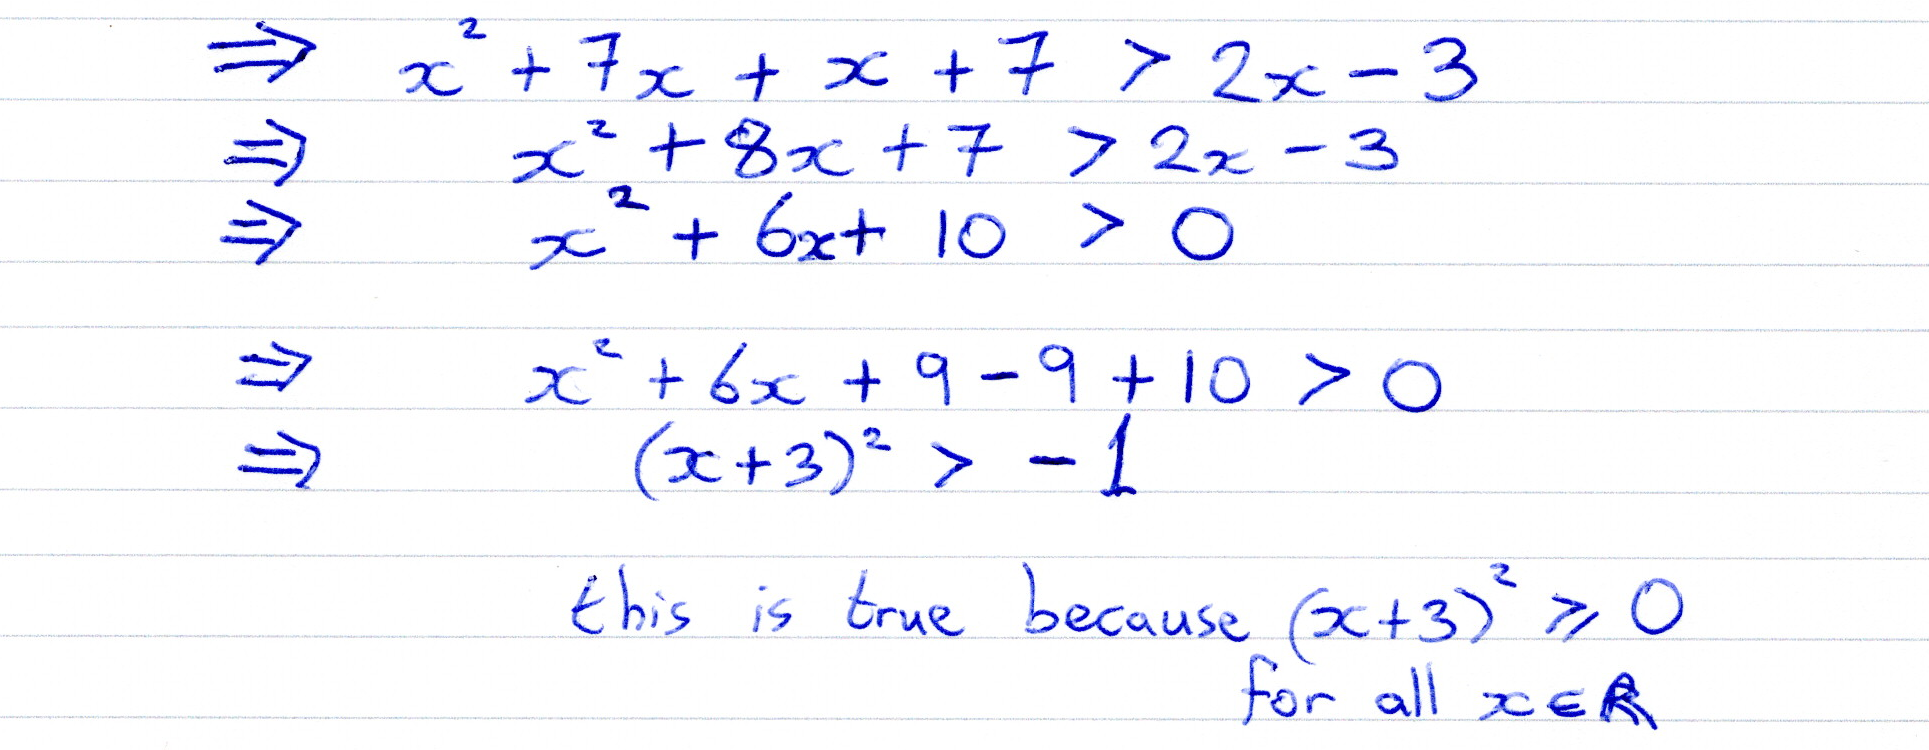 ⇒ x² + 7x + x + 7 > 2x - 3
⇒ x² + 8x + 7 > 2x - 3
⇒ x² + 6x + 10 > 0
⇒ x² + 6x + 9 - 9 + 10 > 0
⇒ (x+3)² > -1
this is true because (x+3)² ⩾ 0
for all x ∈ ℝ